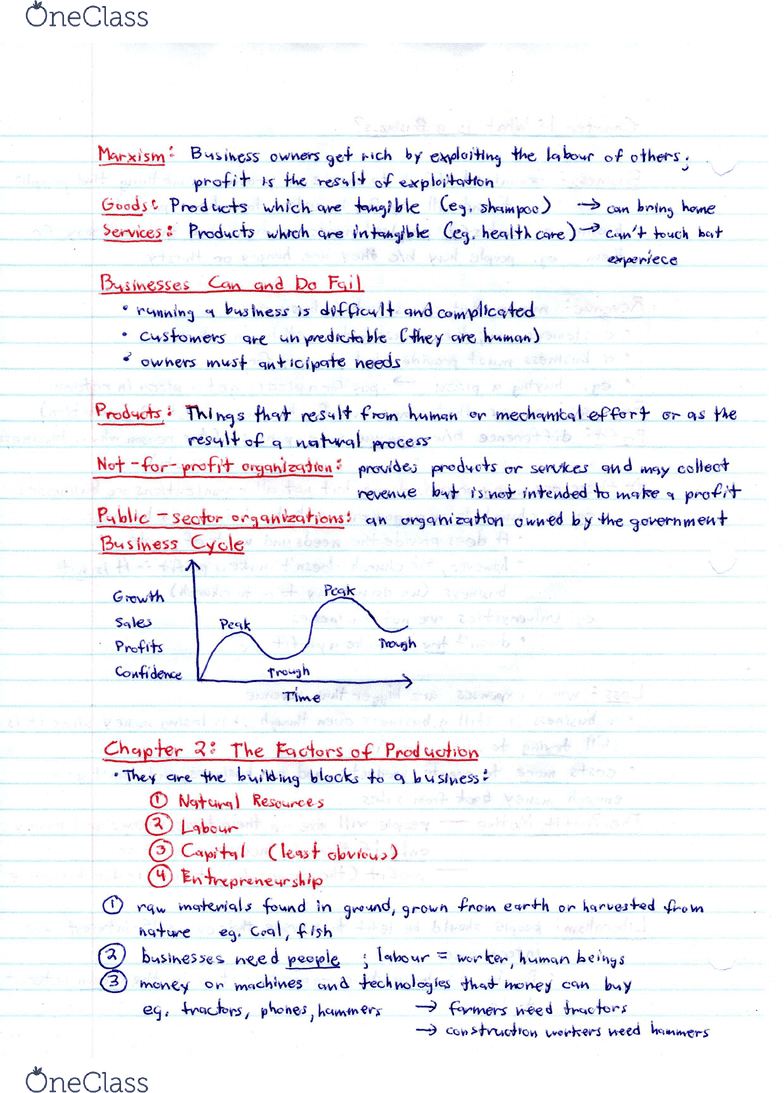 OneClass
Marxism: Business owners get rich by exploiting the labour of others;
profit is the result of exploitation
Goods: Products which are tangible (eg. shampoo) → can bring home
Services: Products which are intangible (eg. health care) → can't touch but
experiece
Businesses Can and Do Fail
• running a business is difficult and complicated
• customers are unpredictable (they are human)
• owners must anticipate needs
Products: Things that result from human or mechanical effort or as the
result of a natural process
Not-for-profit organization: provides products or services and may collect
revenue but is not intended to make a profit
Public-sector organizations: an organization owned by the government
Business Cycle
Growth
Sales
Profits
Confidence
Peak
Trough
Peak
Trough
Time
Chapter 2: The Factors of Production
• They are the building blocks to a business:
① Natural Resources
② Labour
③ Capital (least obvious)
④ Entrepreneurship
① raw materials found in ground, grown from earth or harvested from
nature eg. coal, fish
② businesses need people ; labour = worker, human beings
③ money or machines and technologies that money can buy
eg. tractors, phones, hammers → farmers need tractors
→ construction workers need hammers
OneClass